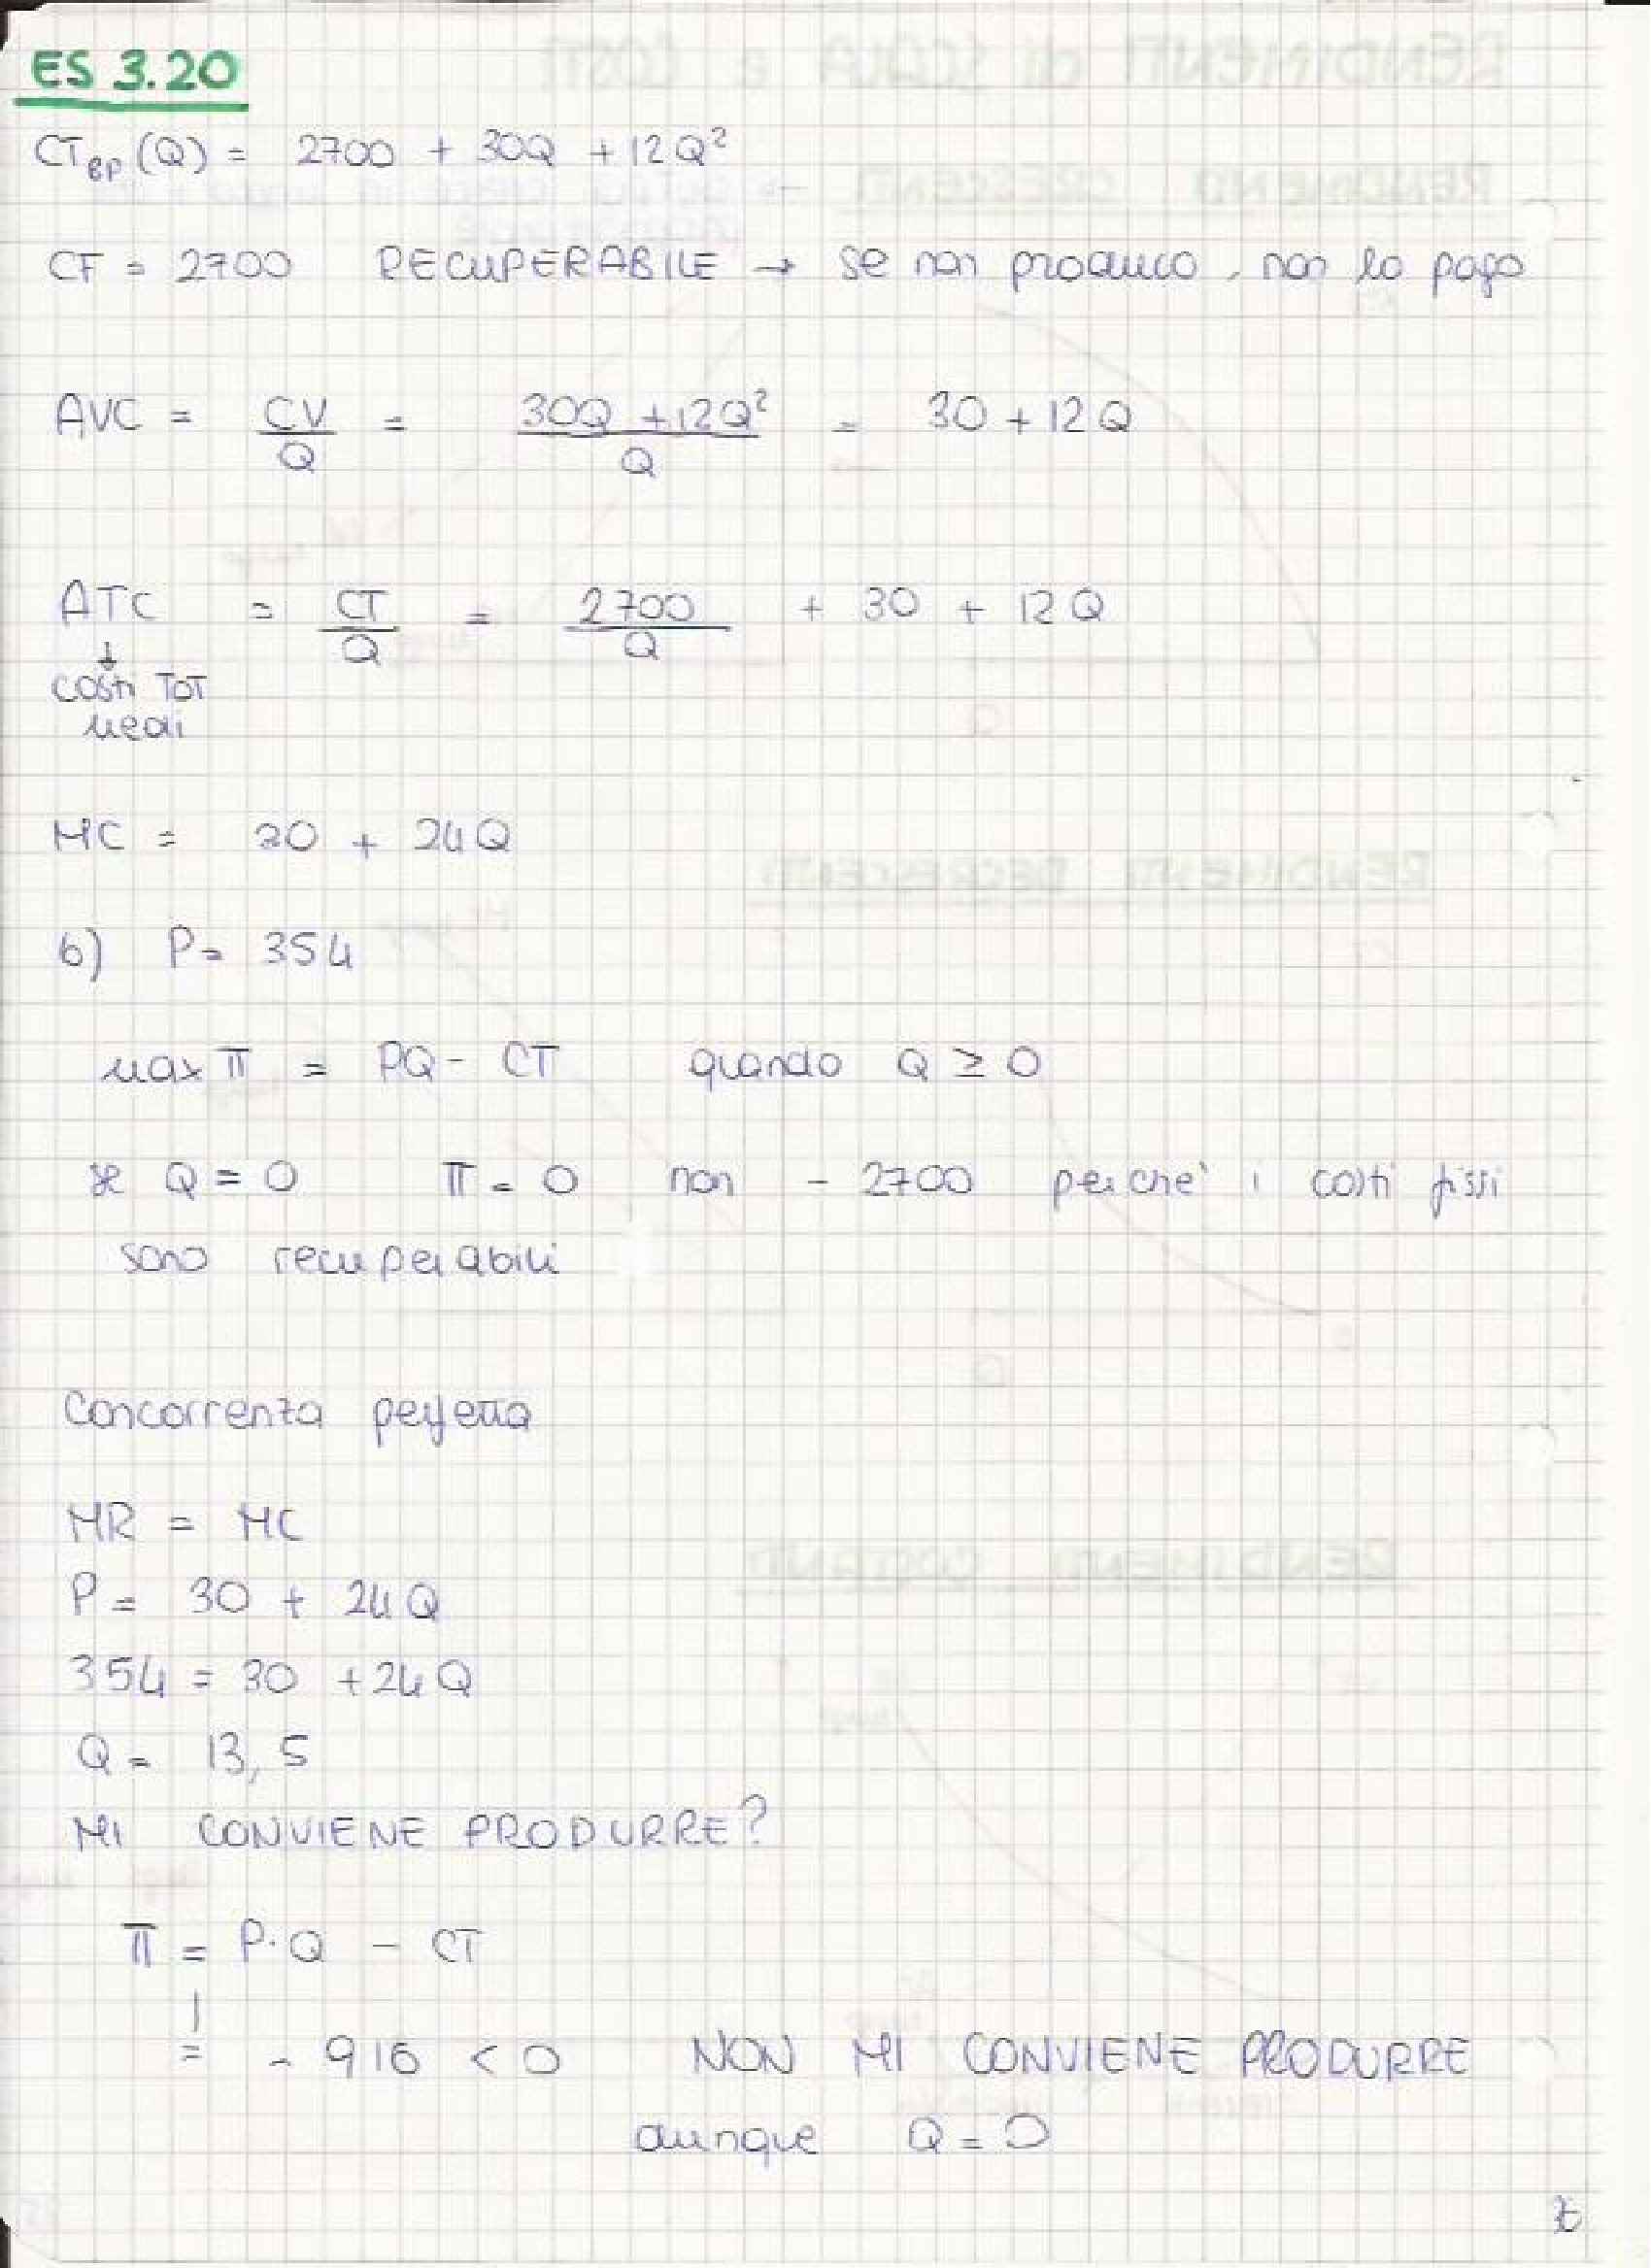 ES 3.20
CT_BP (Q) = 2700 + 30Q + 12Q²
CF = 2700 RECUPERABILE → se non produco, non lo pago
AVC = CV/Q = (30Q + 12Q²)/Q = 30 + 12Q
ATC = CT/Q = 2700/Q + 30 + 12Q
↓
COSTI TOT
medi
MC = 30 + 24Q
b) P = 354
max π = PQ - CT quando Q ≥ 0
se Q = 0 π = 0 non - 2700 perchè i costi fissi
sono recuperabili
Concorrenza perfetta
MR = MC
P = 30 + 24Q
354 = 30 + 24Q
Q = 13,5
MI CONVIENE PRODURRE?
π = P·Q - CT
= - 916 < 0 NON MI CONVIENE PRODURRE
dunque Q = 0